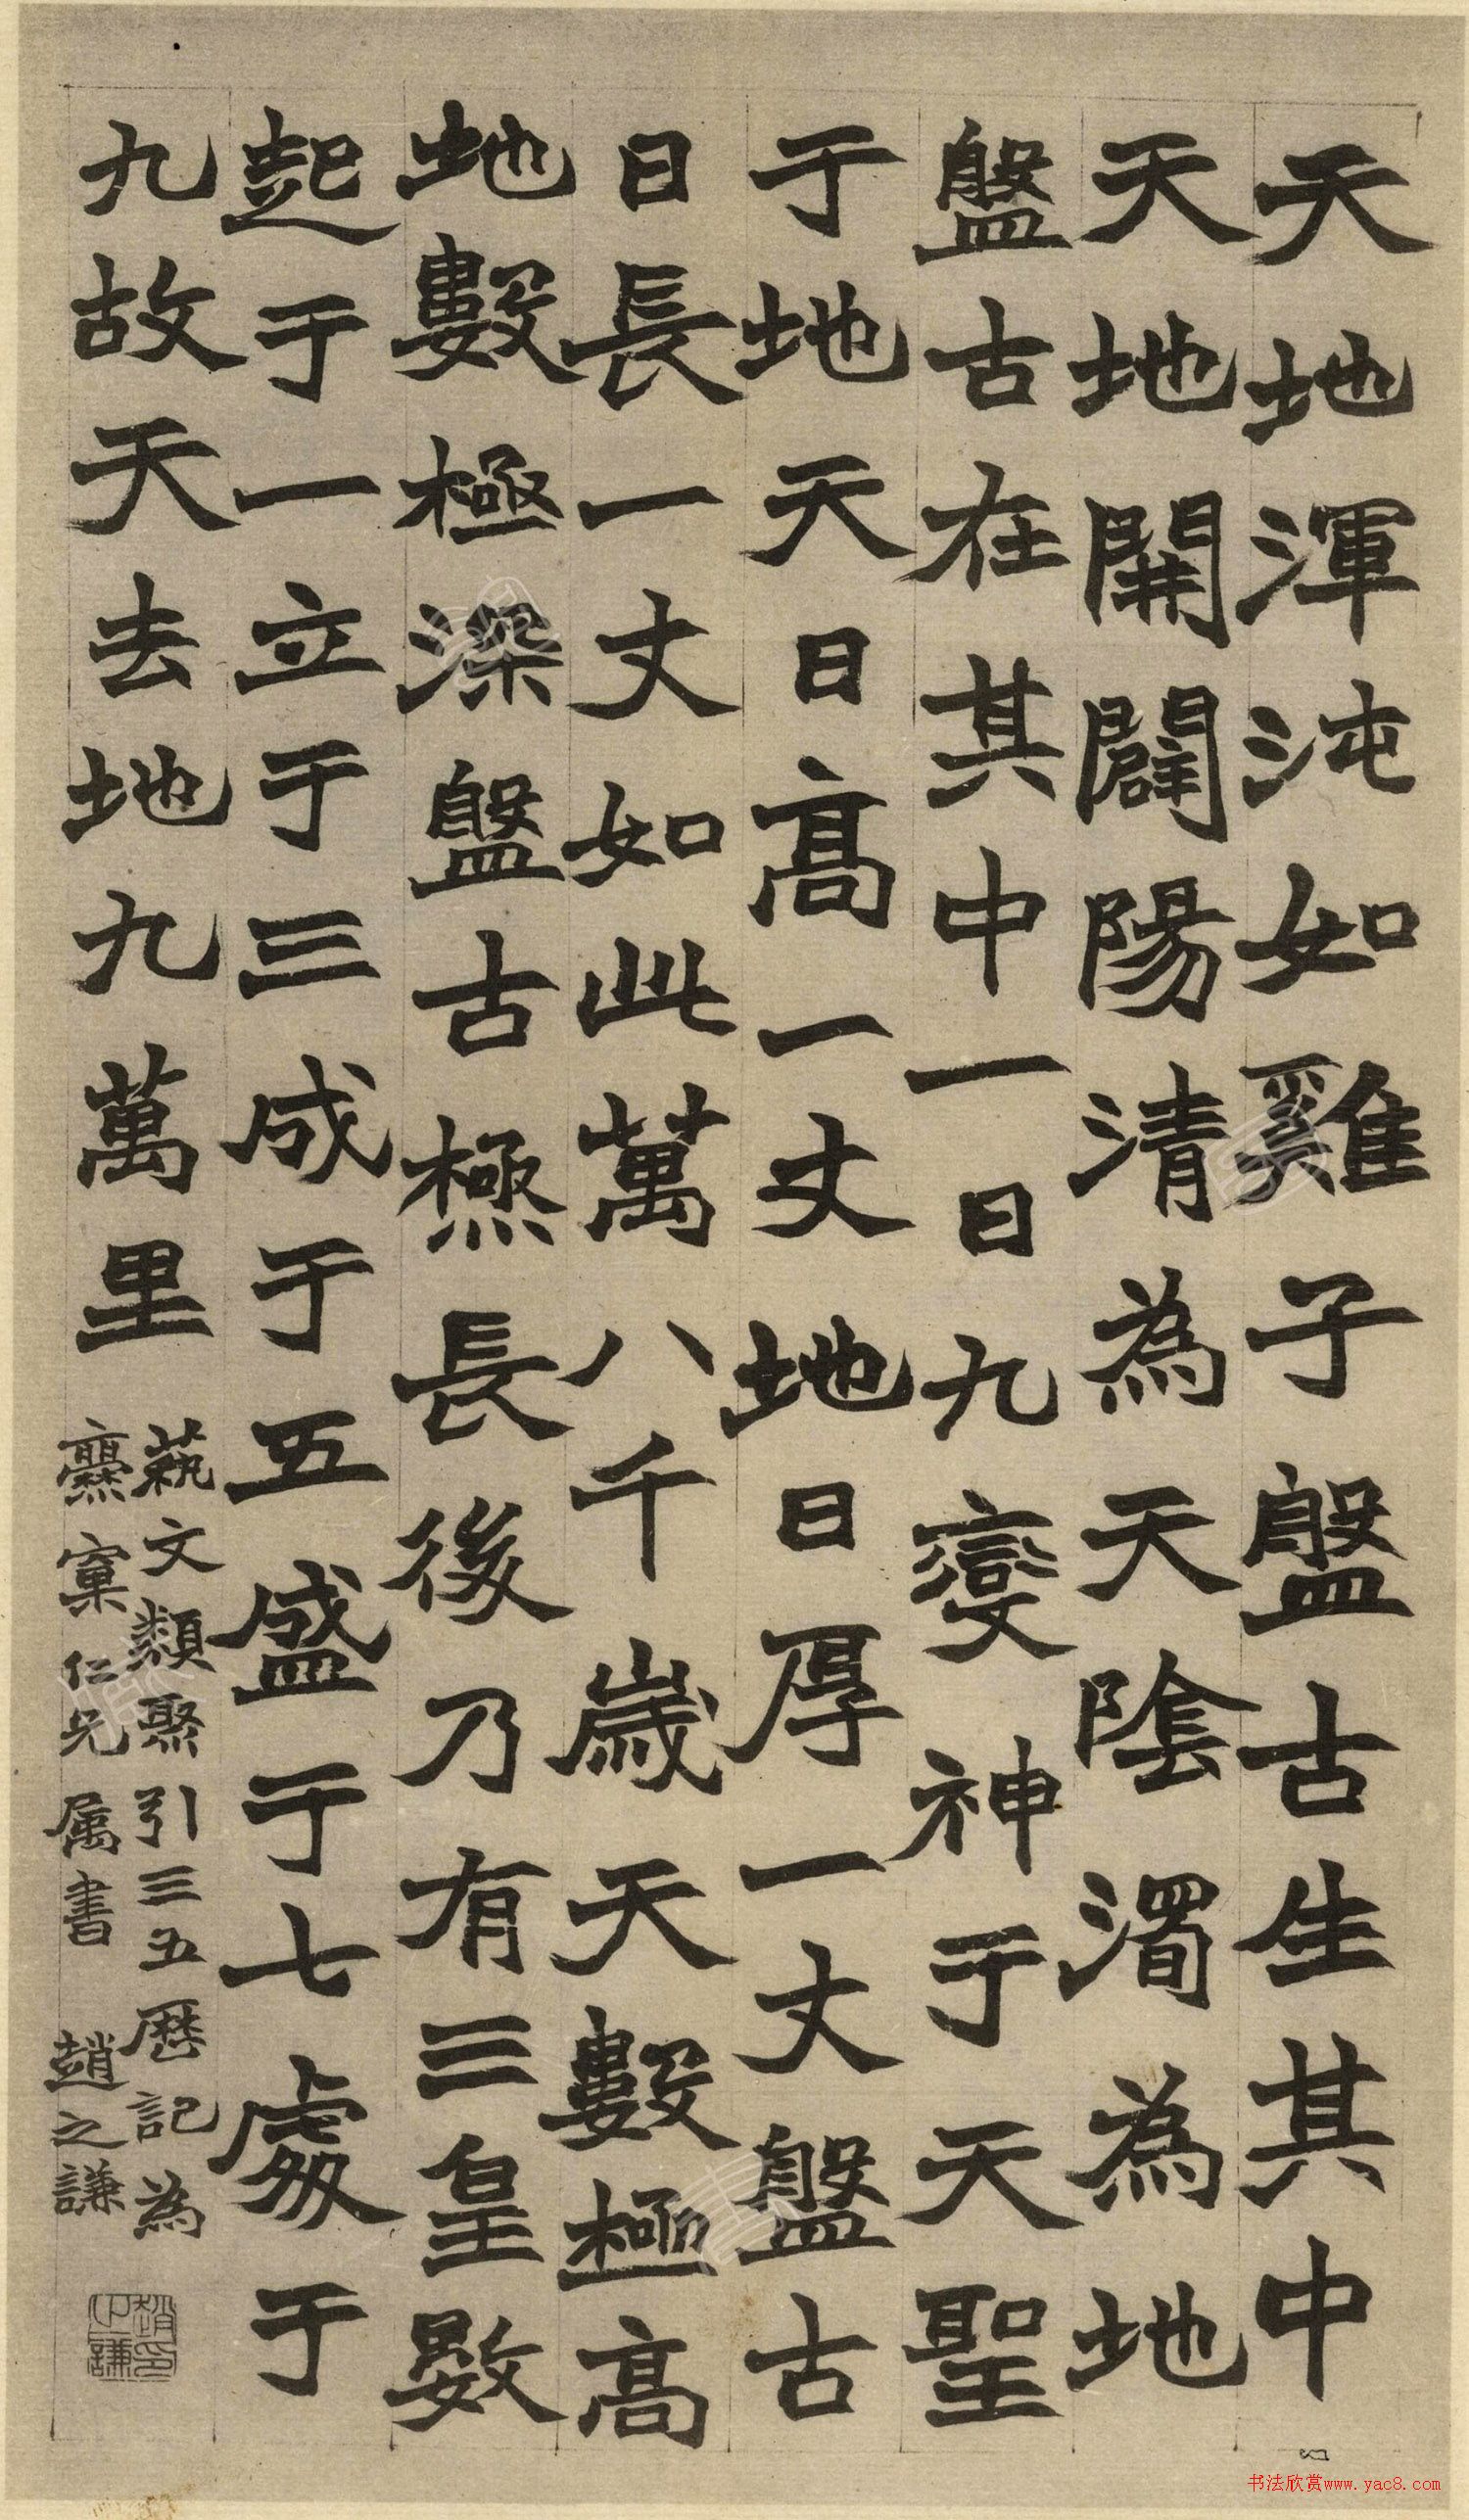 天地渾沌如雞子盤古生其中
天地開闢陽清為天陰濁為地
盤古在其中一日九變神于天聖
于地天日高一丈地日厚一丈盤古
日長一丈如此萬八千歲天數極高
地數極深盤古極長後乃有三皇數
起于一立于三成于五盛于七處于
九故天去地九萬里
蓺文類聚引三五歷記為
仁兄属書 趙之謙
趙之謙印
书法欣赏www.yac8.com